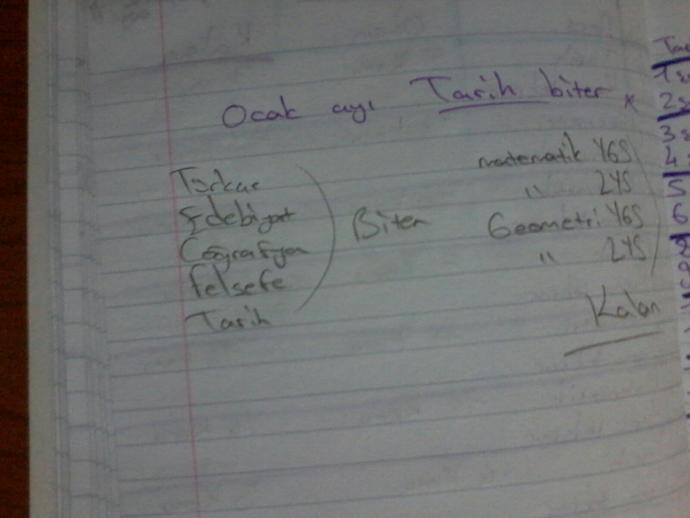 Ocak ayı Tarih biter *
Türkçe
Edebiyat
Coğrafya
felsefe
Tarih
Biten
matematik YGS
" LYS
Geometri YGS
" LYS
Kalan
1
2
3
4
5
6